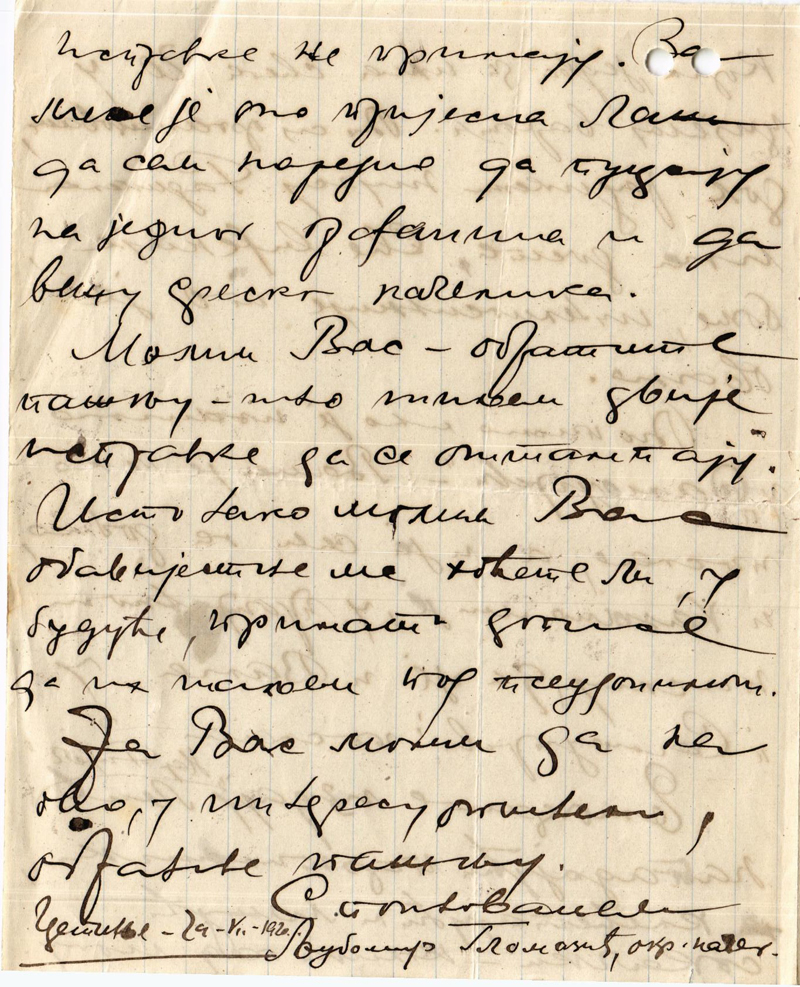 исправке не примају. За
мене је оно пријесна лаж
да сам наредио да пуцају
на једног официна и да
вежу среског начелника.
Молим Вас – обратите
пажњу – што тижем двије
исправке да се оштампају.
Исто тако молим Вас
обавијестите ме хоћете ли, у
будуће, примати дописе
да их шаљем под псеудонимом.
За Вас молим да на
ово, у интересу општем,
обратите пажњу.
С поштовањем
Цетиње – 29-VI-192
Љубомир Гломазић, окр. начел.